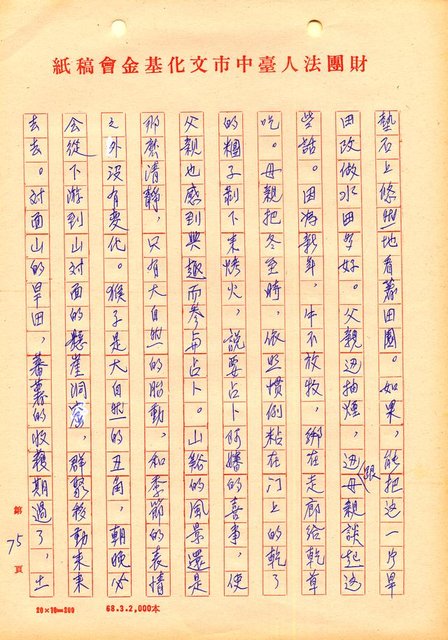 財團法人臺中市文化基金會稿紙
墊石上悠然地看蕃田園。如果,能把這一片旱
田改做水田多好。父親邊抽煙,邊跟母親談起這
些話。因為新年,牛不放牧,綁在走廊給乾草
吃。母親把冬至時,依照慣例粘在門上的乾了
的粿子剝下來烤火,說要占卜阿的喜事,使
父親也感到興趣而參與占卜。山谿的風景還是
那麼清靜,只有大自然的胎動,和季節的表情
之外沒有變化。猴子是大自然的丑角,朝晚必
會從下游到山對面的懸崖洞窟,群聚移動來來
去去。對面山的旱田,蕃薯的收穫期過了,土
第75頁
20×10=200
68.3.2,000本